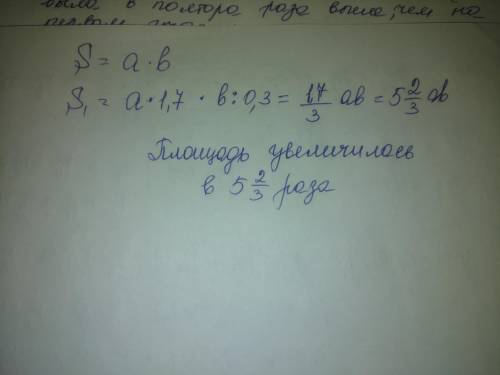 была в полтора раза выше, чем на
первом
S = a · b
S₁ = a · 1,7 · b : 0,3 = 17/3 ab = 5 2/3 ab
Площадь увеличилась
в 5 2/3 раза